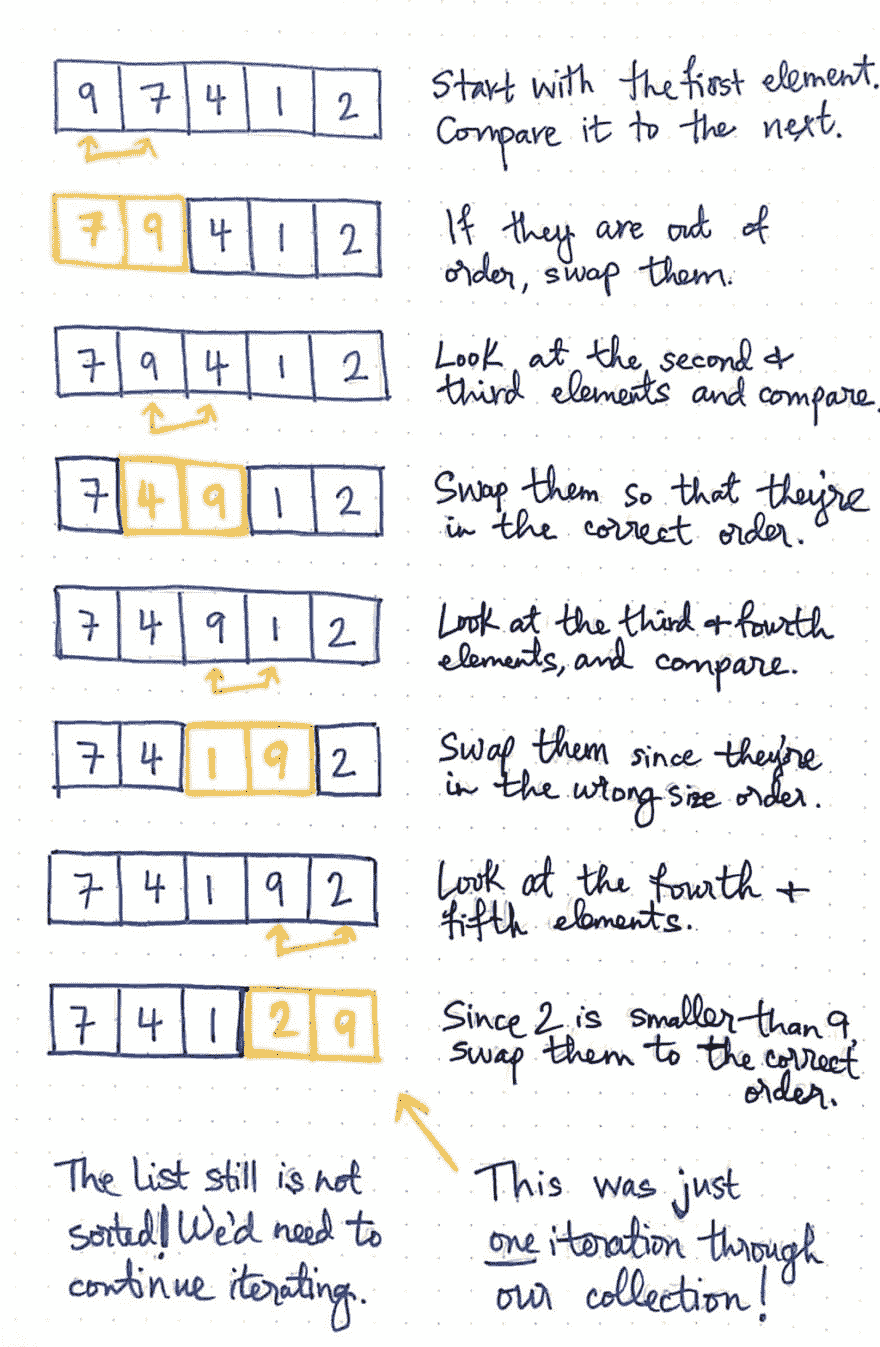 9 7 4 1 2
Start with the first element.
Compare it to the next.
7 9 4 1 2
If they are out of
order, swap them.
7 9 4 1 2
Look at the second &
third elements and compare.
7 4 9 1 2
Swap them so that they're
in the correct order.
7 4 9 1 2
Look at the third & fourth
elements, and compare.
7 4 1 9 2
Swap them since they're
in the wrong size order.
7 4 1 9 2
Look at the fourth &
fifth elements.
7 4 1 2 9
Since 2 is smaller than 9,
swap them to the correct
order.
The list still is not
sorted! We'd need to
continue iterating.
This was just
one iteration through
our collection!